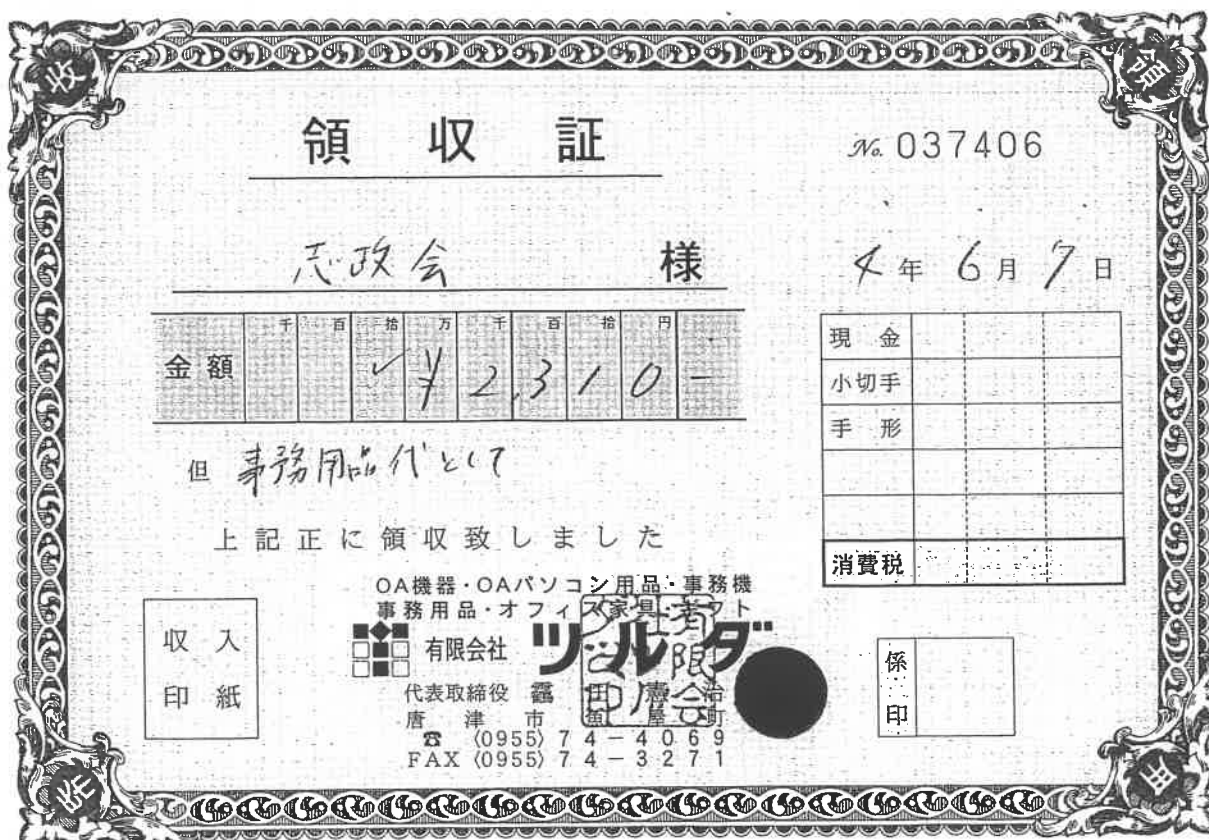 領収証
No. 037406
志政会 様
4年 6月 7日
千 百 拾 万 千 百 拾 円
金額 ¥2,310-
但 事務用品代として
上記正に領収致しました
現金
小切手
手形
消費税
OA機器・OAパソコン用品・事務機
事務用品・オフィス家具・ギフト
有限会社 ツルダ
代表取締役
唐津市魚屋町
☎ (0955) 74-4069
FAX (0955) 74-3271
収入
印紙
係
印